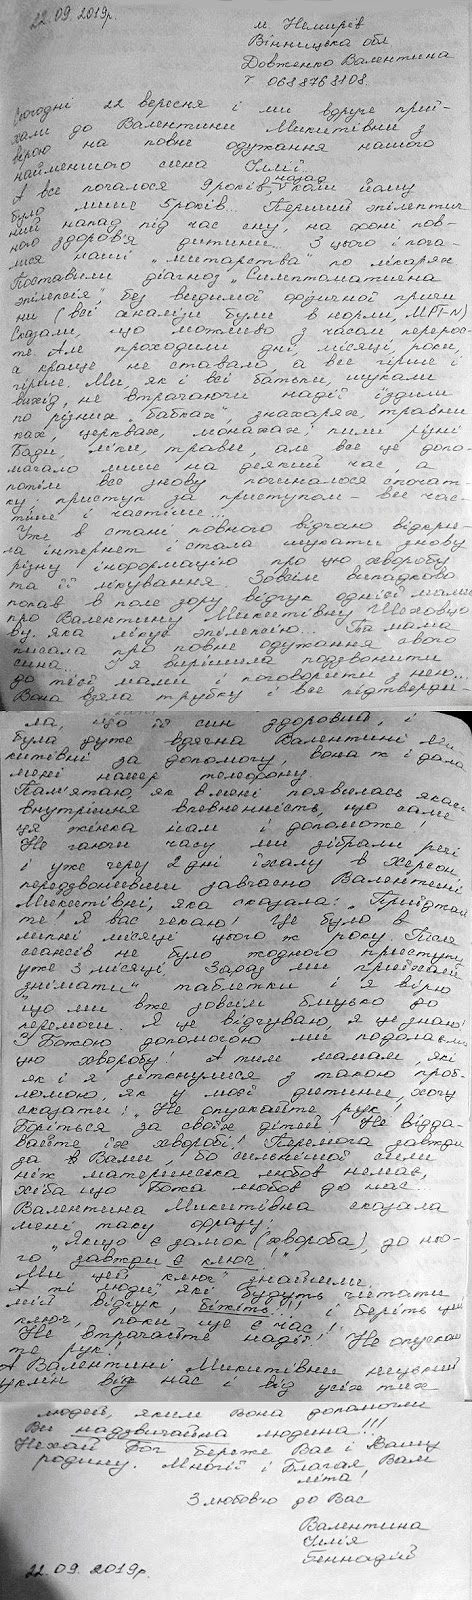 22.09.2019р.
м. Немирів
Вінницька обл
Довженко Валентина
т 0688768108.
Сьогодні 22 вересня і ми вдруге приї-
хали до Валентини Микитівни з
вірою на повне одужання нашого
найменшого сина Іллії.
А все почалося 9років назад, коли йому
було лише 5років... Перший эпілептич
ний напад під час сну, на фоні пов-
ного здоров'я дитини... З цього і поча-
лися наші „митарства" по лікарях
Поставили діагноз „Симптоматична
эпілепсія", без видимої фізичної причи
ни (всі аналізи були в нормі, МРТ-N)
Сказали, що можливо з часом перерос-
те. Але проходили дні, місяці, роки,
а краще не ставало, а все гірше і
гірше. Ми, як і всі батьки, шукали
вихід, не втрачаючи надії їздили
по різних „бабках", знахарях, травни
ках, церквах, монахах; пили різні
Бади, ліки, трави, але все це допо-
магало лише на деякий час, а
потім все знову починалося спочат-
ку: приступ за приступом - все час-
тіше і частіше...
Уже в стані повного відчаю відкри-
ла інтернет і стала шукати знову
різну інформацію про цю хворобу
та її лікування. Зовсім випадково
попав в поле зору відгук однієї мами
про Валентину Микитівну Шеховцо
ву, яка лікує эпілепсію... Та мама
писала про повне одужання свого
сина... І я вирішила подзвонити
до тієї мами і поговорити з нею...
Вона взяла трубку і все підтверди-
ла, що її син здоровий, і
була дуже вдячна Валентині Ми
китівні за допомогу, вона ж і дала
мені номер телефону.
Пам'ятаю, як в мені появилась якась
внутрішня впевненність, що саме
ця жінка нам і допоможе!
Не гаючи часу ми зібрали речі
і уже через 2 дні їхали в Херсон,
передзвонивши завчасно Валентині
Микитівні, яка сказала: „Приїжджай
те! Я вас чекаю! Це було в
липні місяці цього ж року. Після
сеансів не було жодного приступу
уже 3 місяці. Зараз ми приїхали
„знімати" таблетки і я вірю
що ми вже зовсім близько до
перемоги. Я це відчуваю, я це знаю!
З Божою допомогою ми подолаємо
цю хворобу! А тим мамам, які
як і я зіткнулися з такою проб-
лемою, як у моєї дитини, хочу
сказати: „Не опускайте рук!
Боріться за своїх дітей! Не відда-
вайте їх хворобі! Перемога завжди
за Вами бо сильнішої сили
ніж материнська любов немає,
хіба що Божа любов до нас.
Валентина Микитівна сказала
мені таку фразу:
„Якщо є замок (хвороба), до ньо-
го завжди є ключ!"
Ми цей „ключ" знайшли.
А ті люди, які будуть читати
мій відгук, біжіть!!! і беріть цей
ключ, поки ще є час!
Не втрачайте надії! Не опускай
те рук!
А Валентині Микитівни низький
уклін від нас і від усіх тих
людей, яким Вона допомогли
Ви надзвичайна людина!!!
Нехай Бог береже Вас і Вашу
родину. Многії і Благая Вам
літа!
З любов'ю до Вас
Валентина
Ілля
Геннадій
22.09.2019р.